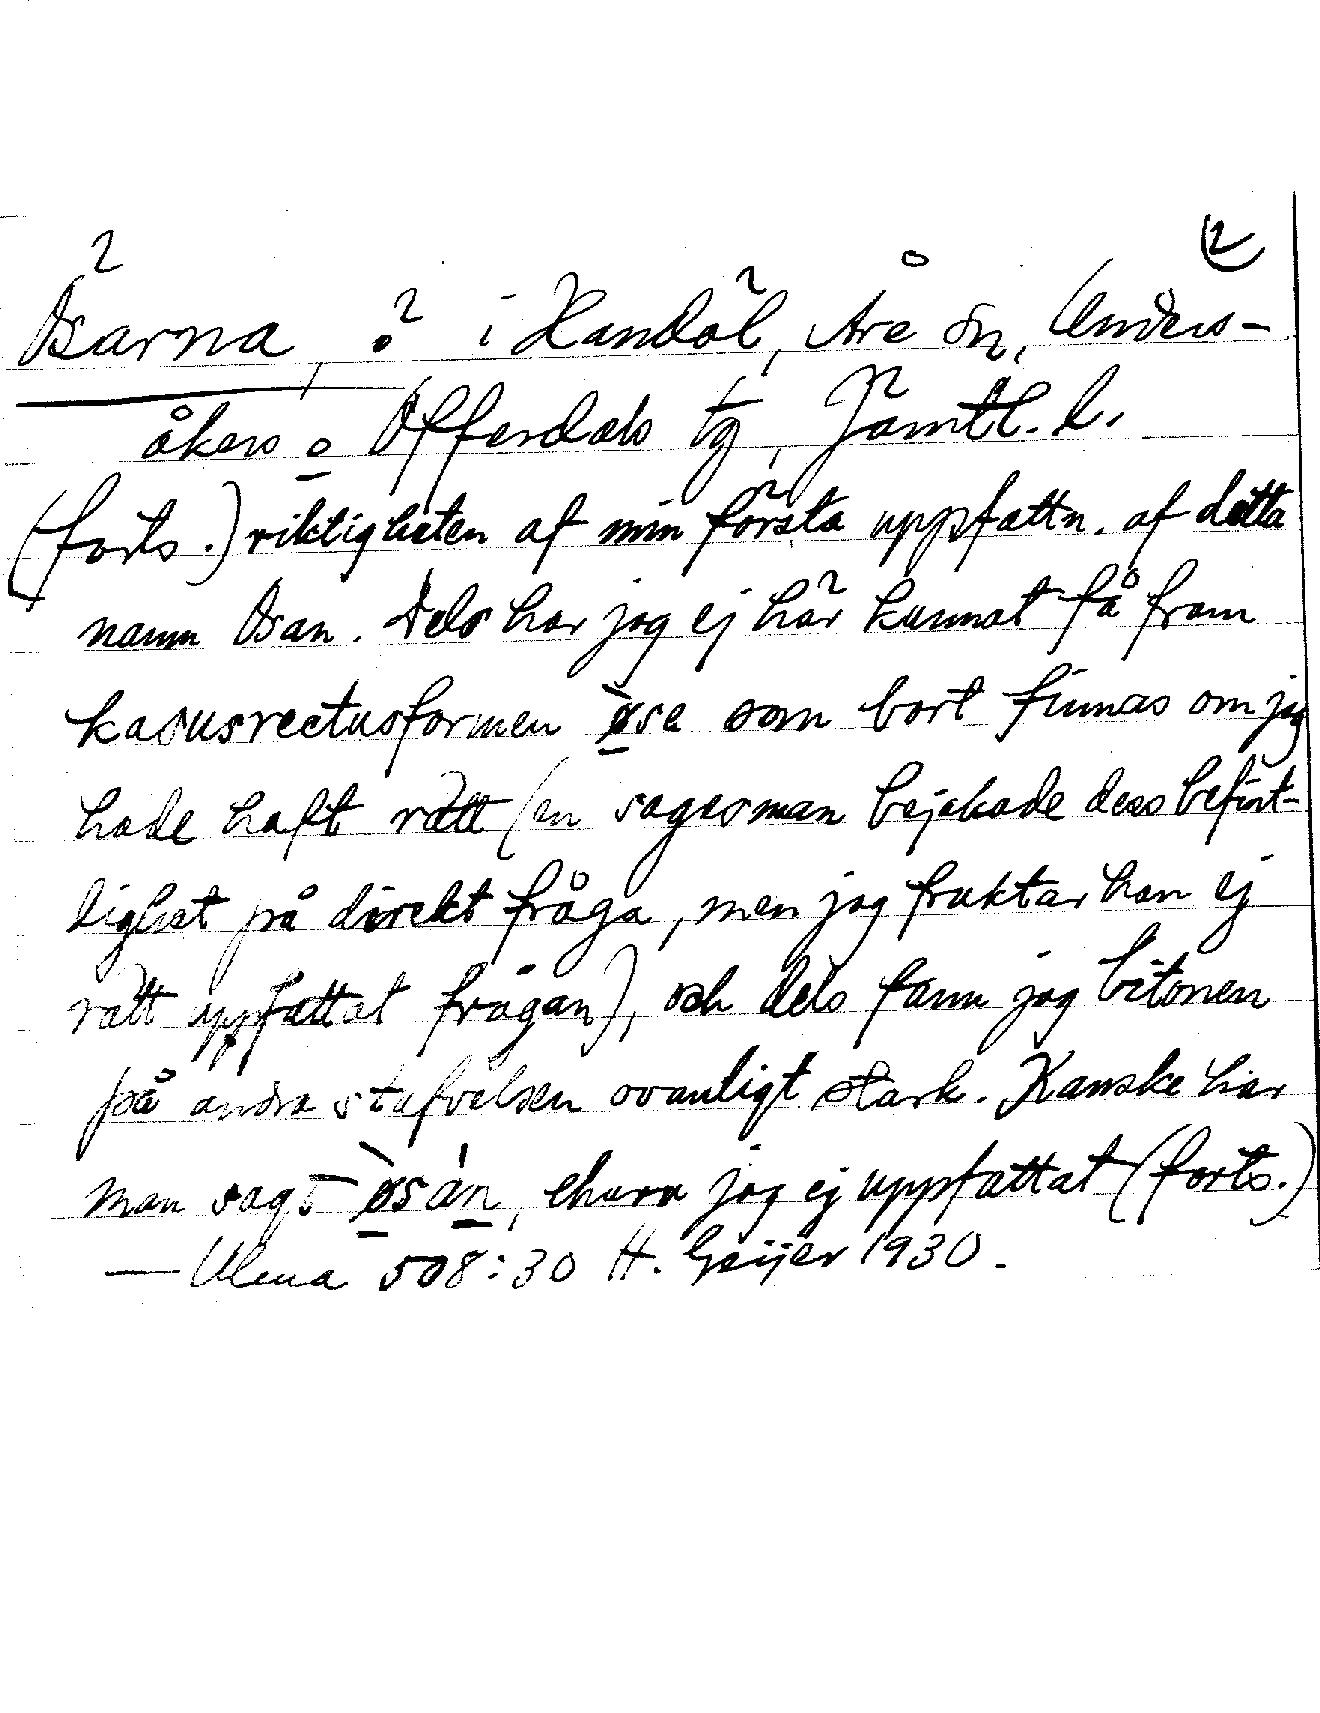 2)
Ösarna, ? i Handöl, Åre sn, Unders-
åkers o Offerdals tg, Jämtl. l.
(forts.) riktigheten af min första uppfattn. af detta
namn Ösan. Dels har jag ej här kunnat få fram
kasusrectusformen ø̀se som bort finnas om jag
hade haft rätt (en sagesman bejakade dess befint-
lighet på direkt fråga, men jag fruktar han ej
rätt uppfattat frågan), och dels fann jag bitonen
på andra stafvelsen ovanligt stark. Kanske har
man sagt ø̀sán, ehuru jag ej uppfattat (forts.)
— Ulma 508:30 H. Geijer 1930.